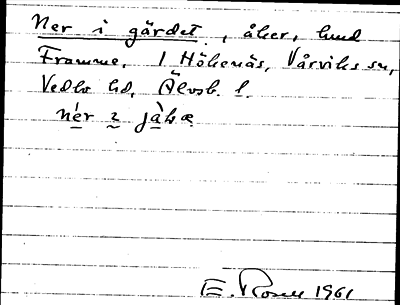 Ner i gärdet, åker, hund
Framme, 1 Hökenäs, Vårviks sn,
Vedbo hd, Älvsb. l.
E. Rosen 1961